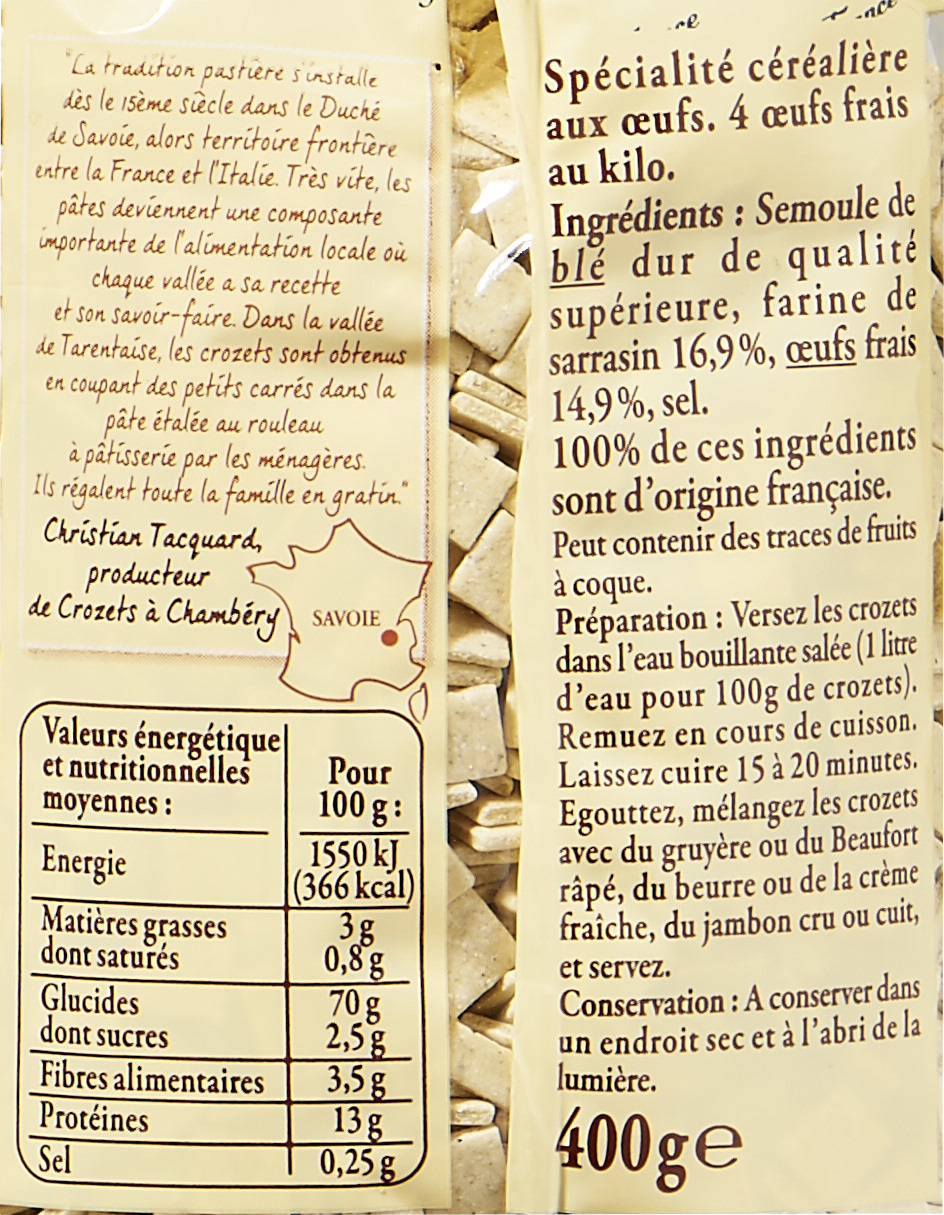 "La tradition pastière s'installe
dès le 15ème siècle dans le Duché
de Savoie, alors territoire frontière
entre la France et l'Italie. Très vite, les
pâtes deviennent une composante
importante de l'alimentation locale où
chaque vallée a sa recette
et son savoir-faire. Dans la vallée
de Tarentaise, les crozets sont obtenus
en coupant des petits carrés dans la
pâte étalée au rouleau
à pâtisserie par les ménagères.
Ils régalent toute la famille en gratin."
Christian Tacquard,
producteur
de Crozets à Chambéry
SAVOIE
Valeurs énergétique
et nutritionnelles
moyennes :
Pour
100 g :
Energie
1550 kJ
(366 kcal)
Matières grasses
3 g
dont saturés
0,8 g
Glucides
70 g
dont sucres
2,5 g
Fibres alimentaires
3,5 g
Protéines
13 g
Sel
0,25 g
Spécialité céréalière
aux œufs. 4 œufs frais
au kilo.
Ingrédients : Semoule de
blé dur de qualité
supérieure, farine de
sarrasin 16,9%, œufs frais
14,9%, sel.
100% de ces ingrédients
sont d'origine française.
Peut contenir des traces de fruits
à coque.
Préparation : Versez les crozets
dans l'eau bouillante salée (1 litre
d'eau pour 100g de crozets).
Remuez en cours de cuisson.
Laissez cuire 15 à 20 minutes.
Egouttez, mélangez les crozets
avec du gruyère ou du Beaufort
râpé, du beurre ou de la crème
fraîche, du jambon cru ou cuit,
et servez.
Conservation : A conserver dans
un endroit sec et à l'abri de la
lumière.
400g e